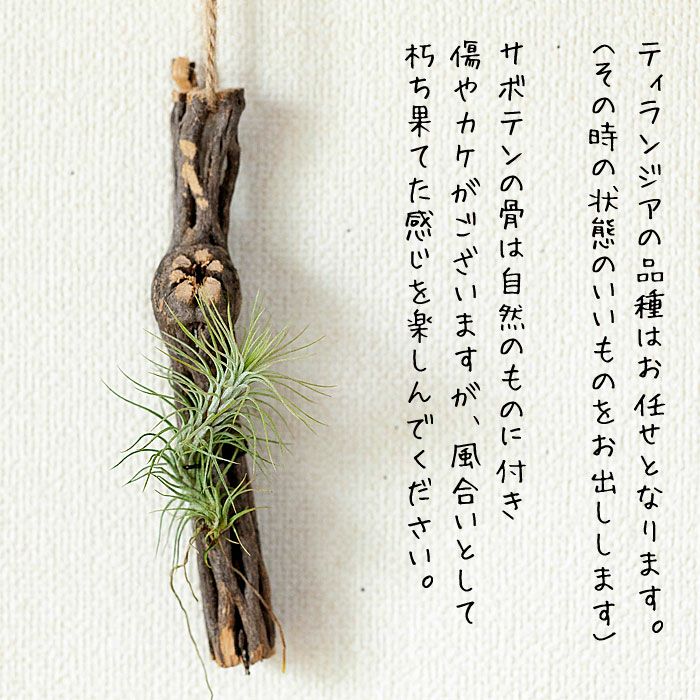 ティランジアの品種はお任せとなります。
（その時の状態のいいものをお出しします）
サボテンの骨は自然のものに付き
傷やカケがございますが、風合いとして
朽ち果てた感じを楽しんでください。